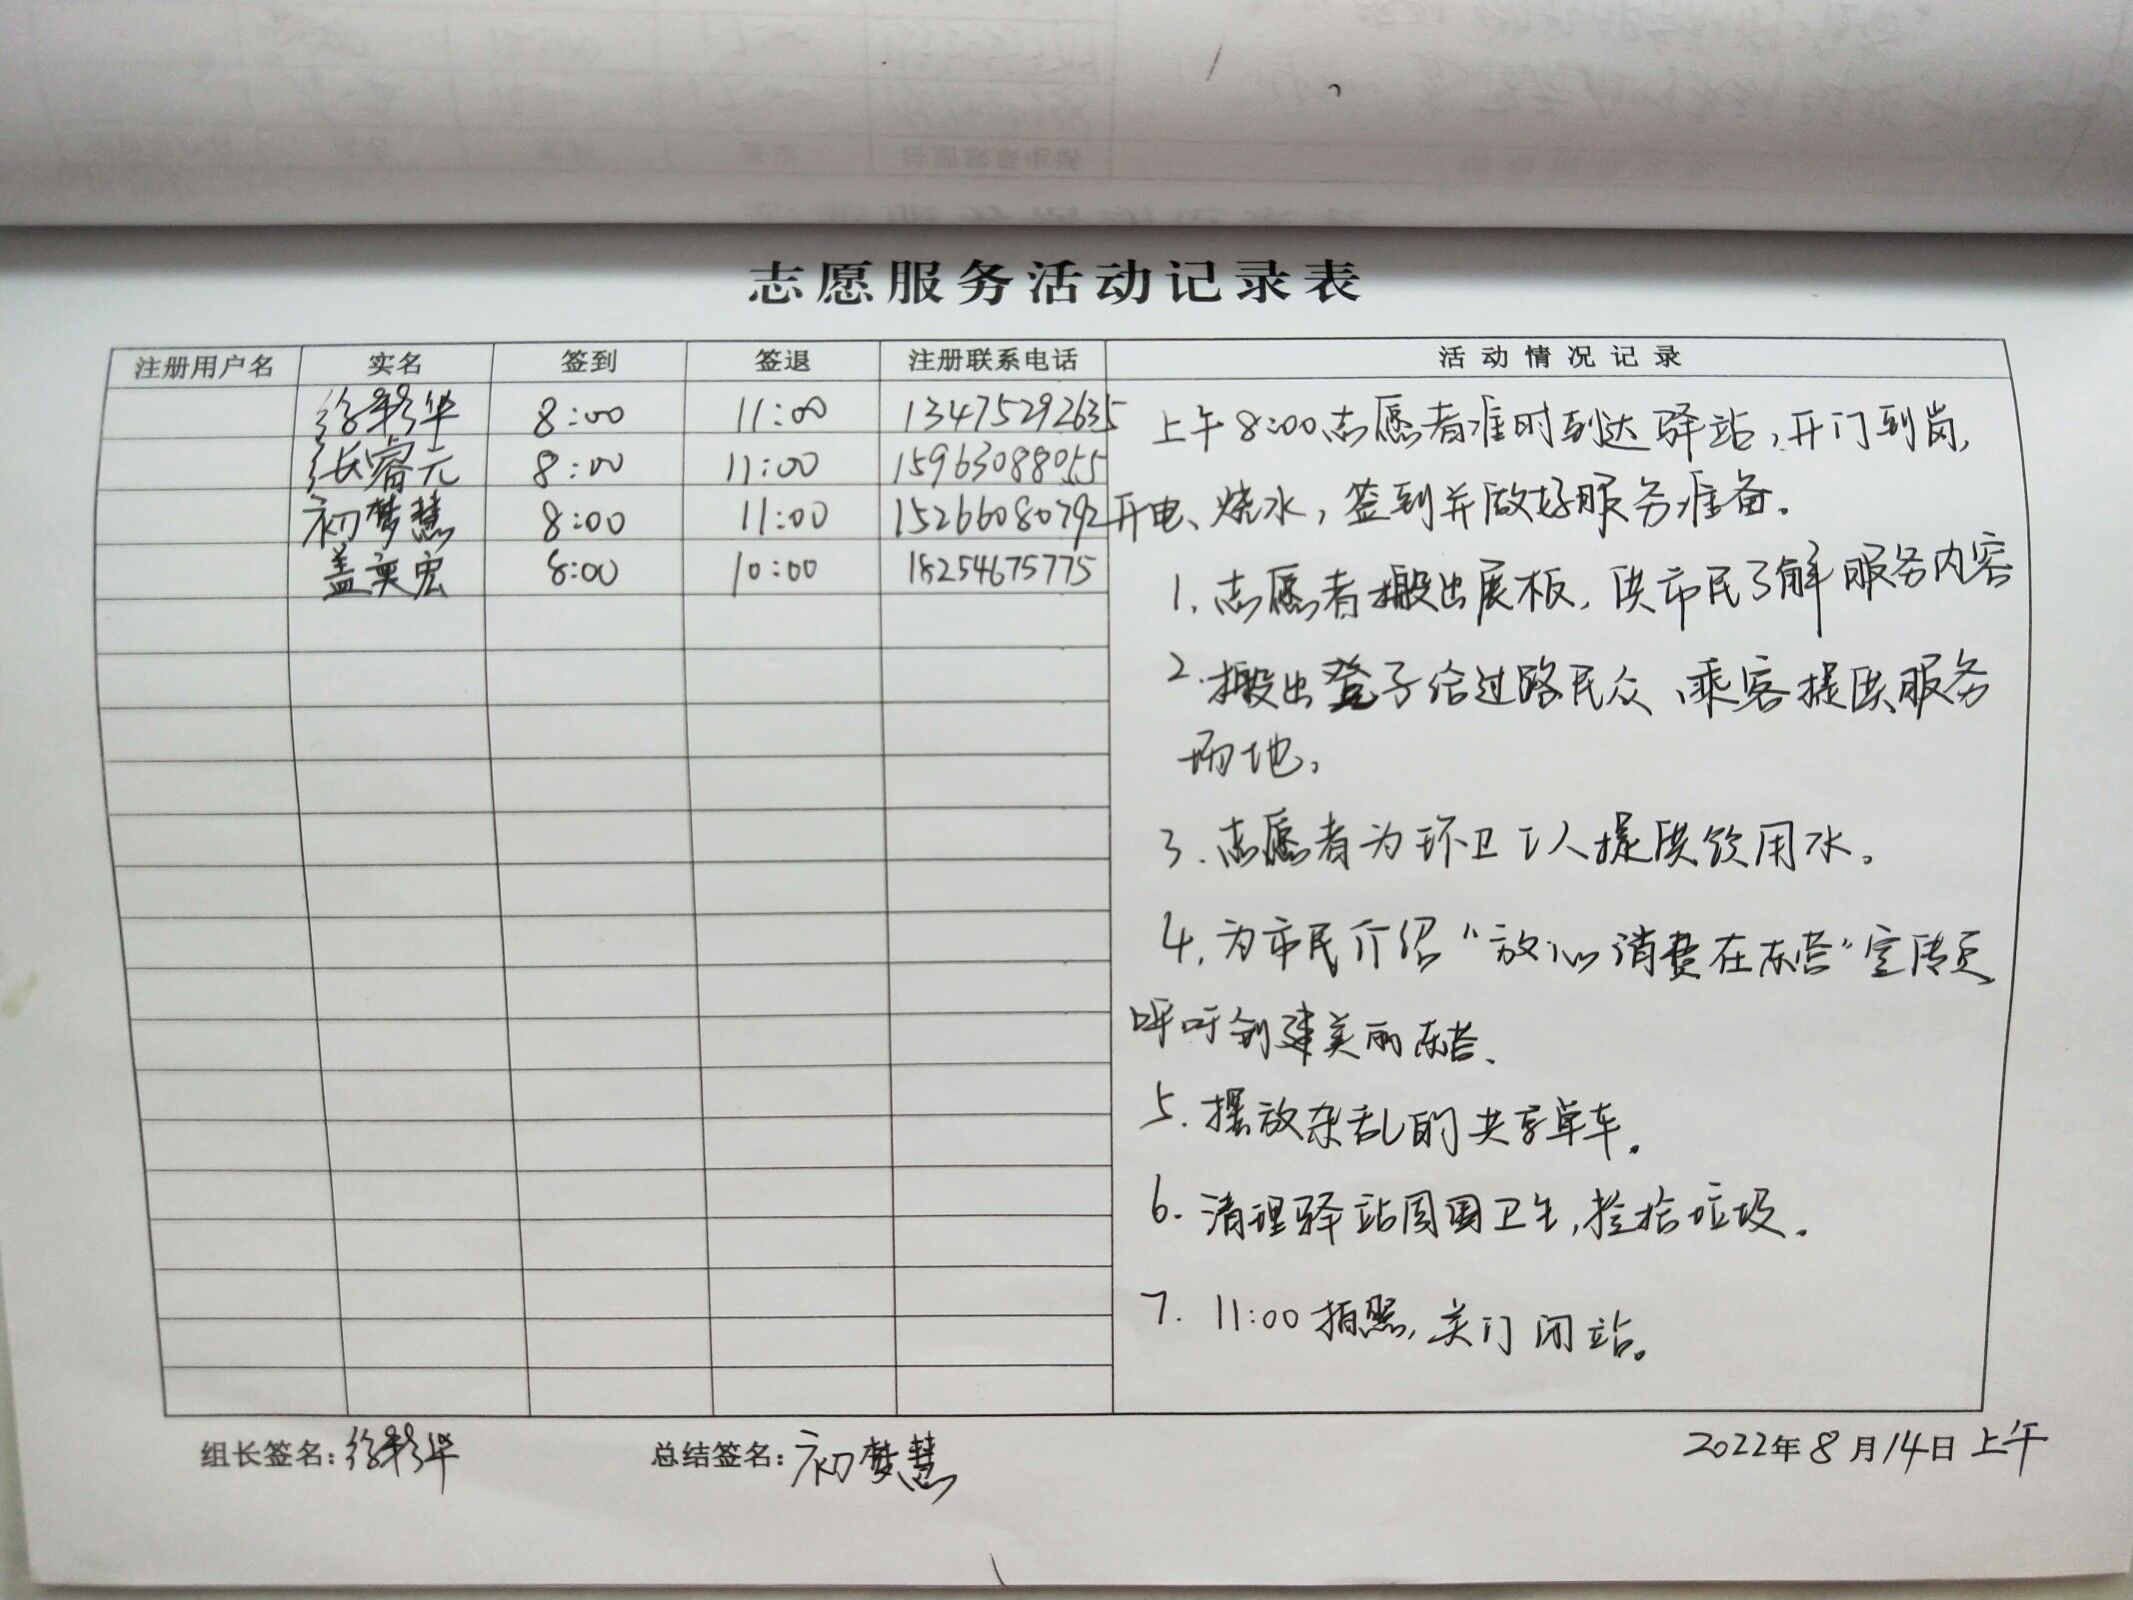 志愿服务活动记录表
注册用户名 实名 签到 签退 注册联系电话 活动情况记录
徐彩华 8:00 11:00 13475292635
张睿元 8:00 11:00 15963088055
初梦慧 8:00 11:00 15266080792
盖奕宏 8:00 10:00 18254675775
上午8:00志愿者准时到达驿站,开门到岗,
开电、烧水,签到并做好服务准备。
1.志愿者搬出展板,供市民了解服务内容
2.搬出凳子给过路民众、乘客提供服务
场地。
3.志愿者为环卫工人提供饮用水。
4.为市民介绍“放心消费在东营”宣传页
呼吁创建美丽东营、
5.摆放杂乱的共享单车。
6.清理驿站周围卫生,捡拾垃圾。
7. 11:00拍照,关门闭站。
组长签名:徐彩华 总结签名:初梦慧 2022年8月14日上午